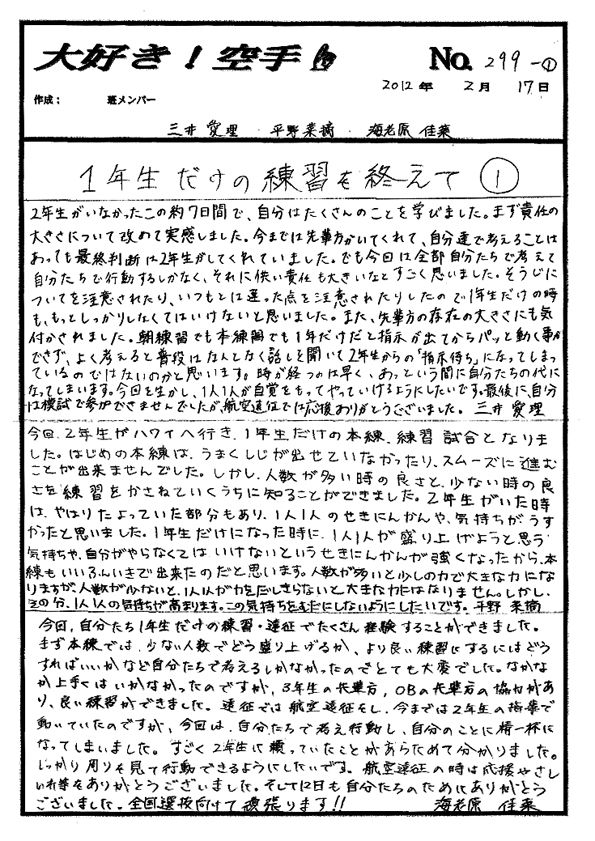 大好き！空手 No. 299-①
2012年 2月 17日
作成： 班メンバー
三井 愛理 ・ 平野 菜摘 ・ 海老原 佳菜
1年生だけの練習を終えて ①
2年生がいなかったこの約7日間で、自分はたくさんのことを学びました。まず責任の
大きさについて改めて実感しました。今までは先輩方がいてくれて、自分達で考えることは
あっても最終判断は2年生がしてくれていました。でも今回は全部自分たちで考えて
自分たちで行動するしかなく、それに伴い責任も大きいなとすごく思いました。そうじに
ついてを注意されたり、いつもとは違った点を注意されたりしたので1年生だけの時
も、もっとしっかりしなくてはいけないと思いました。また、先輩方の存在の大きさにも気
付かされました。朝練習でも本練習でも1年だけだと指示が出てからパッと動く事が
できず、よく考えると普段はなんとなく話しを聞いて2年生からの「指示待ち」になってしまっ
ているのではないのかと思います。時が経つのは早く、あっという間に自分たちの代に
なってしまいます。今回を生かし、1人1人が自覚をもってやっていけるようにしたいです。最後に、自分
は模試で参加できませんでしたが、航空遠征では応援ありがとうございました。三井 愛理
今回、2年生がハワイへ行き、1年生だけの本練、練習試合となりま
した。はじめの本練は、うまくしじが出せていなかったり、スムーズに進む
ことが出来ませんでした。しかし、人数が多い時の良さと、少ない時の良
さを練習をかさねていくうちに知ることができました。2年生がいた時
は、やはりたよっていた部分もあり、1人1人のせきにんかんや、気持ちがうす
かったと思いました。1年生だけになった時に、1人1人が盛り上げようと思う
気持ちや、自分がやらなくてはいけないというせきにんかんが強くなったから、本
練もいいふんいきで出来たのだと思います。人数が多いと少しの力で大きな力にな
りますが、人数が少ないと、1人1人が力をださないと大きな力にはなりません。しかし、
その分、1人1人の気持ちが高まります。この気持ちをむだにしないようにしたいです。平野 菜摘
今回、自分たち1年生だけの練習・遠征でたくさん経験することができました。
まず本練では、少ない人数でどう盛り上げるか、より良い練習にするにはどう
すればいいかなど自分たちで考えるしかなかったのでとても大変でした。なかな
か上手くはいかなかったのですが、3年生の先輩方、OBの先輩方の協力があ
り、良い練習ができました。遠征では航空遠征をし、今までは2年生の指導で
動いていたのですが、今回は、自分たちで考え行動し、自分のことに精一杯に
なってしまいました。すごく2年生に頼っていたことがあらためて分かりました。
しっかり周りを見て行動できるようにしたいです。航空遠征の時は応援やさし
いれ等をありがとうございました。そして12日も自分たちのためにありがとう
ございました。全国選抜向けて頑張ります!! 海老原 佳菜